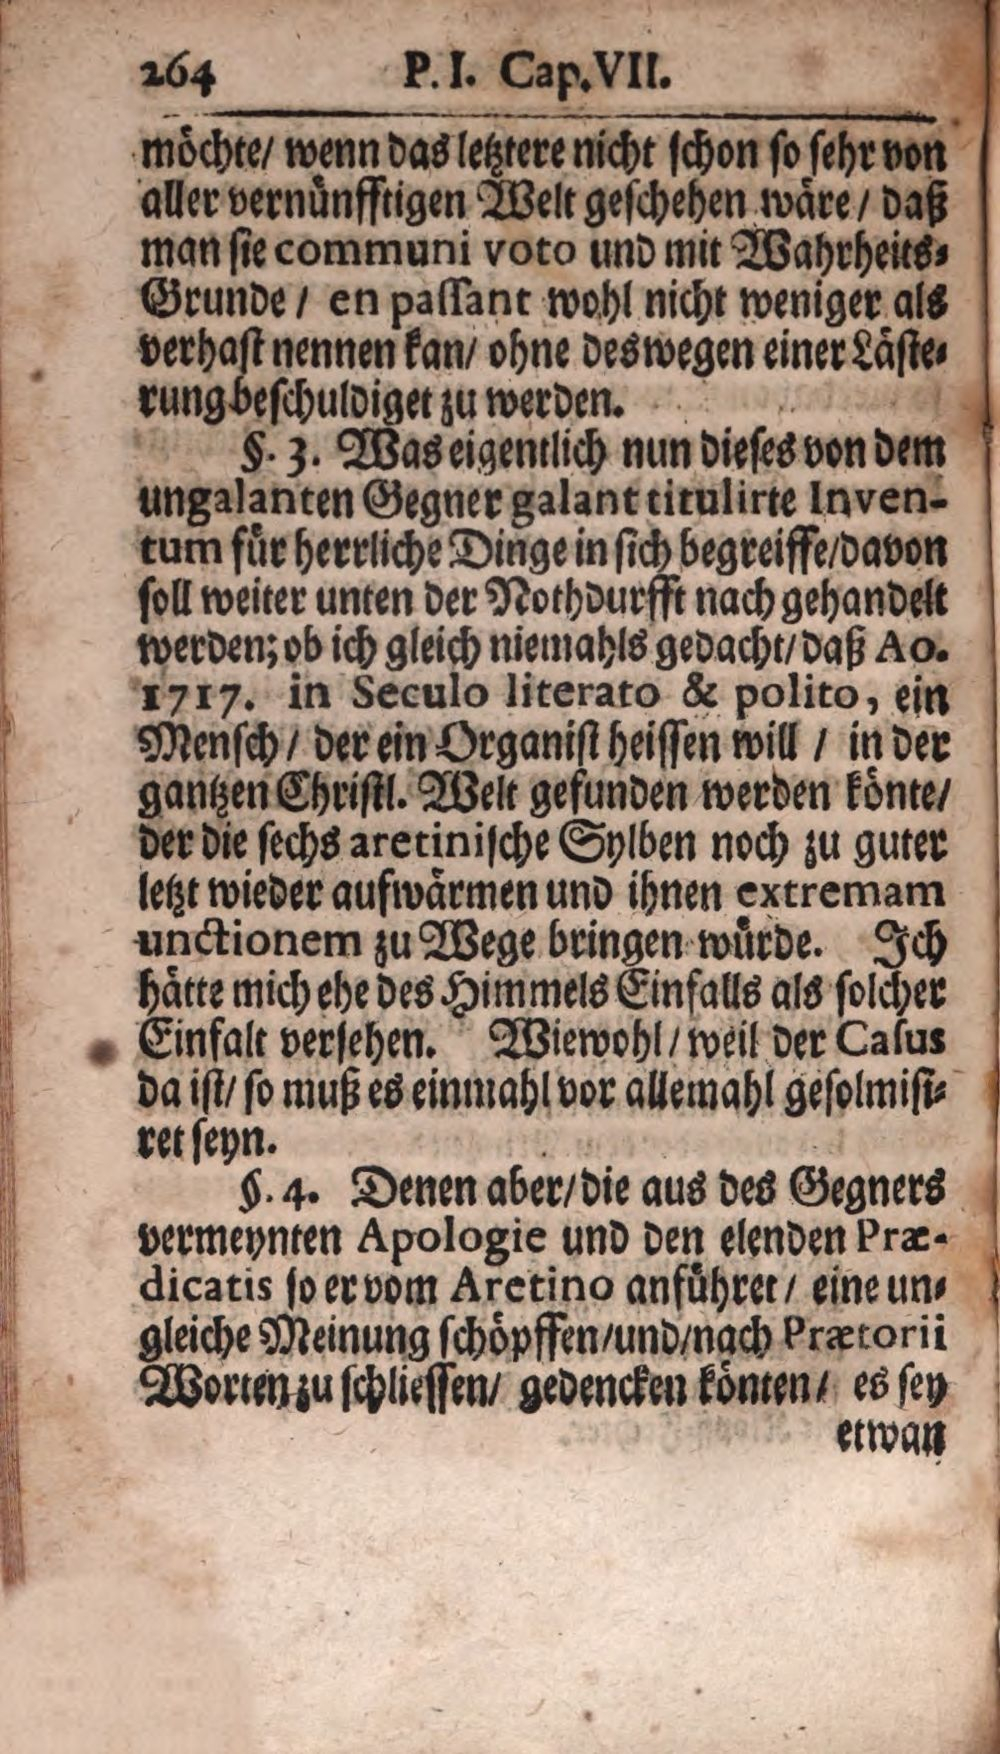 264 P. I. Cap. VII.
möchte/ wenn das letztere nicht schon so sehr von
aller vernünfftigen Welt geschehen wäre/ daß
man sie communi voto und mit Wahrheits-
Grunde/ en passant wohl nicht weniger als
verhast nennen kan/ ohne deswegen einer Läste-
rung beschuldiget zu werden.
§. 3. Was eigentlich nun dieses von dem
ungalanten Gegner galant titulirte Inven-
tum für herrliche Dinge in sich begreiffe/ davon
soll weiter unten der Nothdurfft nach gehandelt
werden; ob ich gleich niemahls gedacht/ daß Ao.
1717. in Seculo literato & polito, ein
Mensch/ der ein Organist heissen will/ in der
gantzen Christl. Welt gefunden werden könte/
der die sechs aretinische Sylben noch zu guter
letzt wieder aufwärmen und ihnen extremam
unctionem zu Wege bringen würde. Ich
hätte mich ehe des Himmels Einfalls als solcher
Einfalt versehen. Wiewohl/ weil der Casus
da ist/ so muß es einmahl vor allemahl gesolmisi-
ret seyn.
§. 4. Denen aber/ die aus des Gegners
vermeynten Apologie und den elenden Præ-
dicatis so er vom Aretino anführet/ eine un-
gleiche Meinung schöpffen/ und/ nach Prætorii
Worten zu schliessen/ gedencken könten/ es sey
etwan